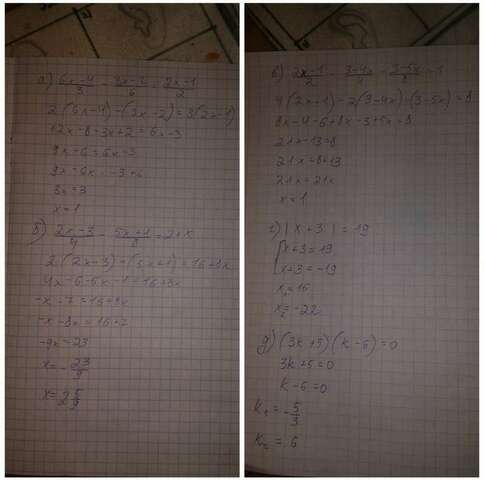 а) (6x-4)/3 - (3x-2)/6 = (2x-1)/2
2(6x-4)-(3x-2)=3(2x-1)
12x-8-3x+2=6x-3
9x-6=6x-3
9x-6x=-3+6
3x=3
x=1
б) (2x-3)/4 - (5x+1)/8 = 2+x
2(2x-3)-(5x+1)=16+8x
4x-6-5x-1=16+8x
-x-7=16+8x
-x-8x=16+7
-9x=23
x=-23/9
x=2 5/9
в) (2x-1)/2 - (3-4x)/4 - (3-5x)/8 = 1
4(2x-1)-2(3-4x)-(3-5x)=8
8x-4-6+8x-3+5x=8
21x-13=8
21x=8+13
21x=21
x=1
г) |x+3|=19
x+3=19
x+3=-19
x₁=16
x₂=-22
д) (3k+5)(k-6)=0
3k+5=0
k-6=0
k₁=-5/3
k₂=6